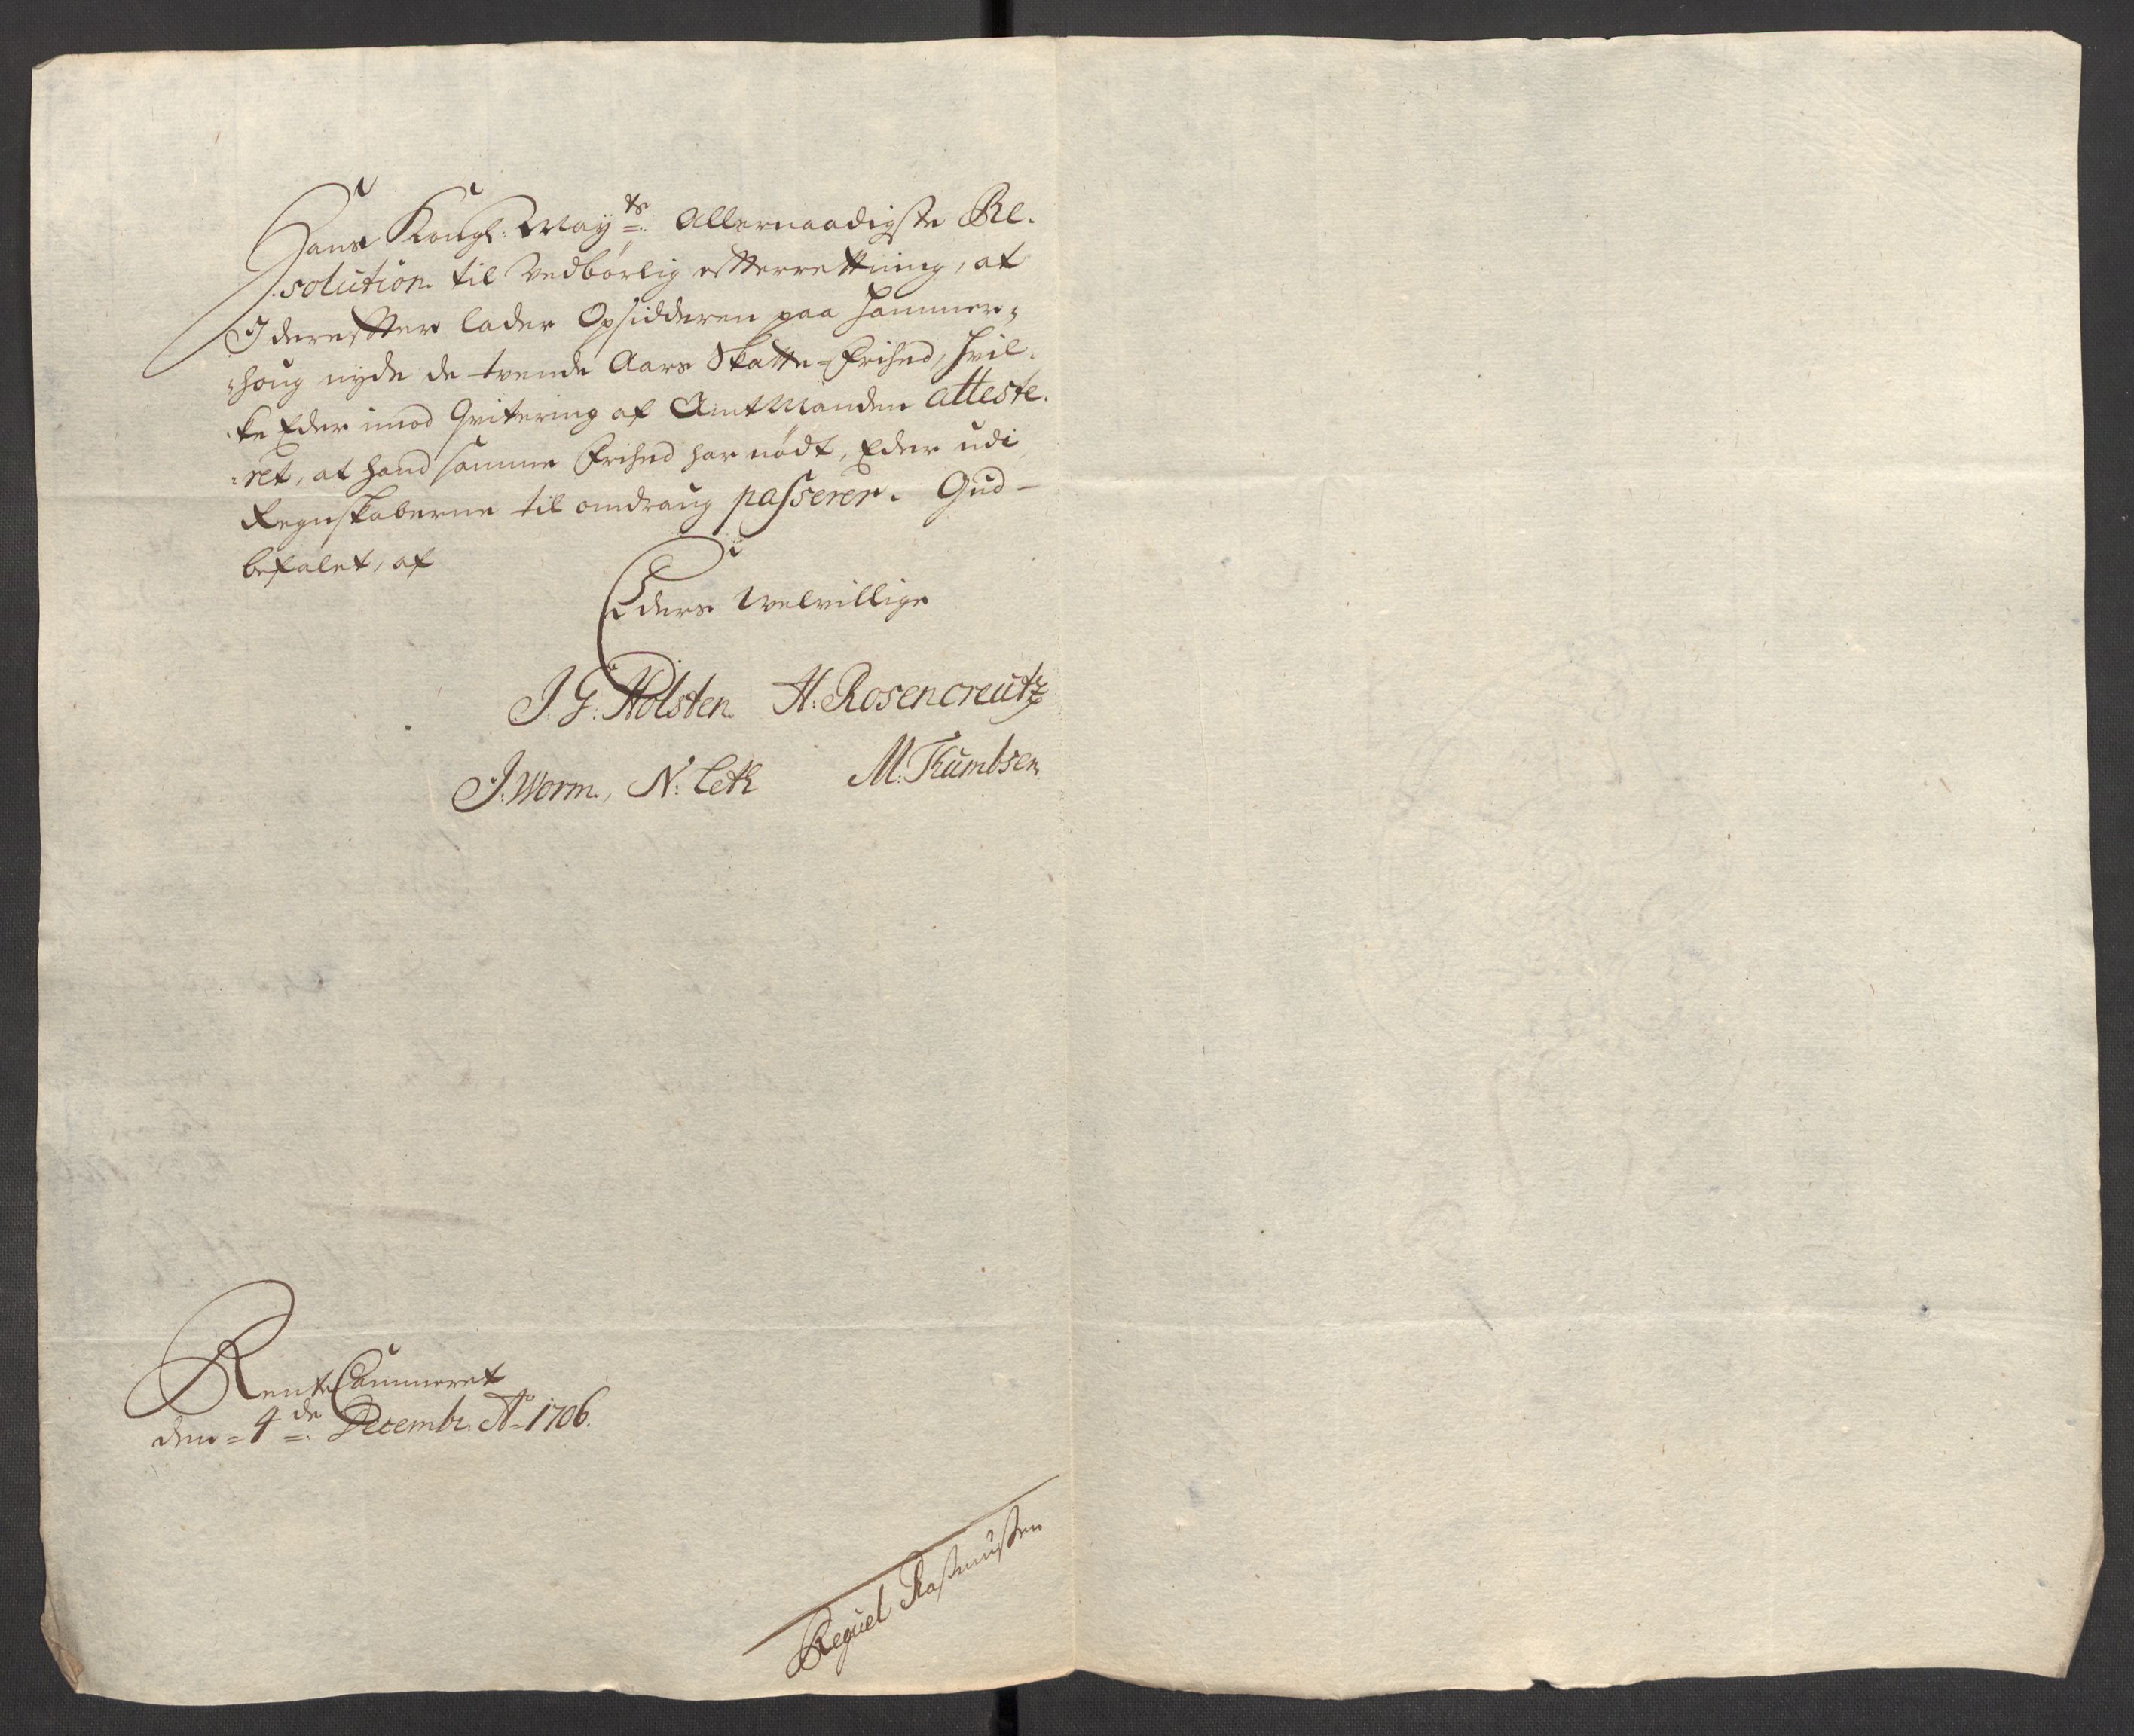 Hans Kongl: May:ts Allernaadigste Re-
solution til vedbörlig efterretning, at
I derefter lader Opsidderen paa Hammer-
houg nyde de tvende Aars Skatte-Frihed, hvil-
ke Eder imod Qvitering af Amtmanden atteste-
ret, at hand samme Frihed har nödt, Eder udi
Regnskaberne til omdraug passerer. Gud
befalet, af
Eders velvillige
J. G. Holsten H: Rosencreutz
J. Worm, N: Leth M: Thumbsen
Rente Cammeret
den 4de Decembr. Ao 1706.
Reguel Rasmussen